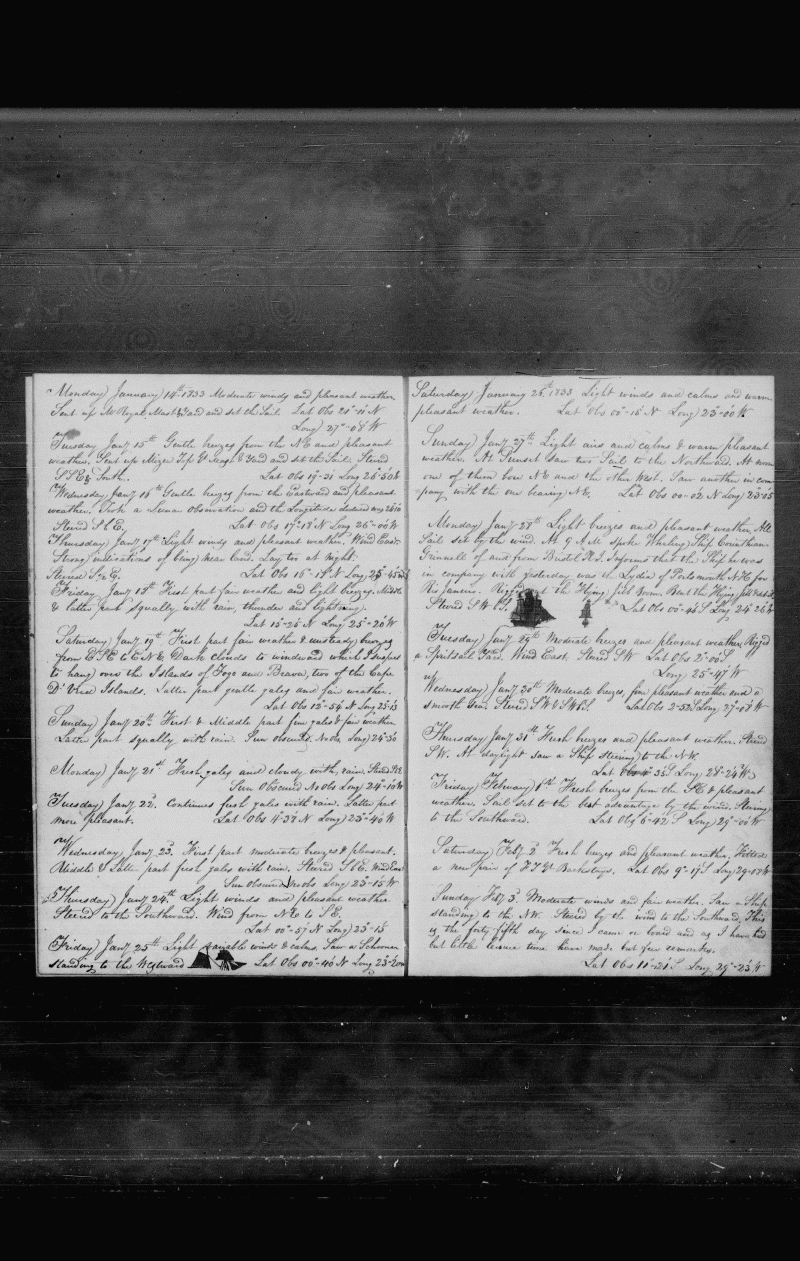 Monday January 14th 1833 Moderate winds and pleasant weather
Sent up M Royal Mast & Yard and set the Sail. Lat Obs 21°-11 N
Long 27°-08' W
Tuesday Jany 15th Gentle breezes from the NE and pleasant
weather. Sent up Mizen Top G Mast & Yard and set the Sail. Steered
S S E & South. Lat Obs 19-21 Long 26-50 W
Wednesday Jany 16th Gentle breezes from the Eastward and pleasant
weather. Took a Lunar observation and the Longitude deduced
Steered S & E. Lat Obs 17-18 N Long 26-00 W
Thursday Jany 17th Light winds and pleasant weather. Wind East.
Strong indications of being near land. Lay too at night.
Steered Lat Obs 16-18 N Long 25-45 W
Friday Jany 18th First part fair weather and light breezes. Middle
& latter part squally with rain, thunder and lightning.
Lat 15-26 N Long 25-20 W
Saturday Jany 19th First part fair weather & unsteady breezes
from E S E to E N E. Dark clouds to windward which I suppose
to hang over the Islands of Fogo and Brava, two of the Cape
D' Verd Islands. Latter part gentle gales and fair weather.
Lat Obs 12-54 N Long 25-13
Sunday Jany 20th First & Middle part fine gales & fair weather
Latter part squally with rain. Sun obscured. No Obs. Long 24-30
Monday Jany 21st Fresh gales and cloudy with rain. Steered
Sun Obscured No Obs Long 24-10 W
Tuesday Jany 22. Continues fresh gales with rain. Latter part
more pleasant. Lat Obs 4-37 N Long 23-40 W
Wednesday Jany 23. First part moderate breezes & pleasant.
Middle & Latter part fresh gales with rain. Steered S & E. Wind East
Sun Obscured No obs Long 23-15 W
Thursday Jany 24th Light winds and pleasant weather
Steered to the Southward. Wind from N E to S E.
Lat 00°-57 N Long 23-15
Friday Jany 25th Light variable winds & calms. Saw a Schooner
standing to the Westward Lat Obs 00°-40 N Long 23-20
Saturday January 26th 1833 Light winds and calms and warm
pleasant weather. Lat Obs 00°-15 N Long 23°-00 W.
Sunday Jany 27th Light airs and calms & warm pleasant
weather. At Sunset saw two Sail to the Northward. At noon
one of them bore N E and the other West. Saw another in com-
pany with the one bearing N E. Lat Obs 00-02 N Long 23°05
Monday Jany 28th Light breezes and pleasant weather. All
Sail set by the wind. At 9 A M spoke Whaling Ship Corinthian
Grinnell of and from Bristol R I. Informs that the Ship he was
in company with yesterday was the Lydia of Portsmouth N H for
Rio Janeiro. Rigged out the Flying Jibb Boom. Bent the Flying Jibb & set it.
Steered S W Lat Obs 00-44 S Long 24 26 W
Tuesday Jany 29th Moderate breezes and pleasant weather. Rigged
a Spritsail Yard. Wind East. Steered S W Lat Obs 2°-00 S.
Long 25-47 W
Wednesday Jany 30th Moderate breezes, fine pleasant weather and a
smooth Sea. Steered S W & Lat Obs 2-52 S Long 27-01 W
Thursday Jany 31st Fresh breezes and pleasant weather. Steered
S W. At daylight saw a Ship steering to the N W.
Lat Obs 4°35 S Long 28-24 W
Friday February 1st Fresh breezes from the S E & pleasant
weather. Sail set to the best advantage by the wind. Steering
to the Southward. Lat Obs 6-42 S Long 29-00 W
Saturday Feby 2 Fresh breezes and pleasant weather. Fitted
a new pair of Backstays. Lat Obs 9°-17 S Long 29-07 W
Sunday Feby 3. Moderate winds and fair weather. Saw a Ship
standing to the N W. Steered by the wind to the Southward. This
is the forty fifth day since I came on board and as I have had
but little leisure time have made but few remarks.
Lat Obs 11°-21 S Long 29°-23 W